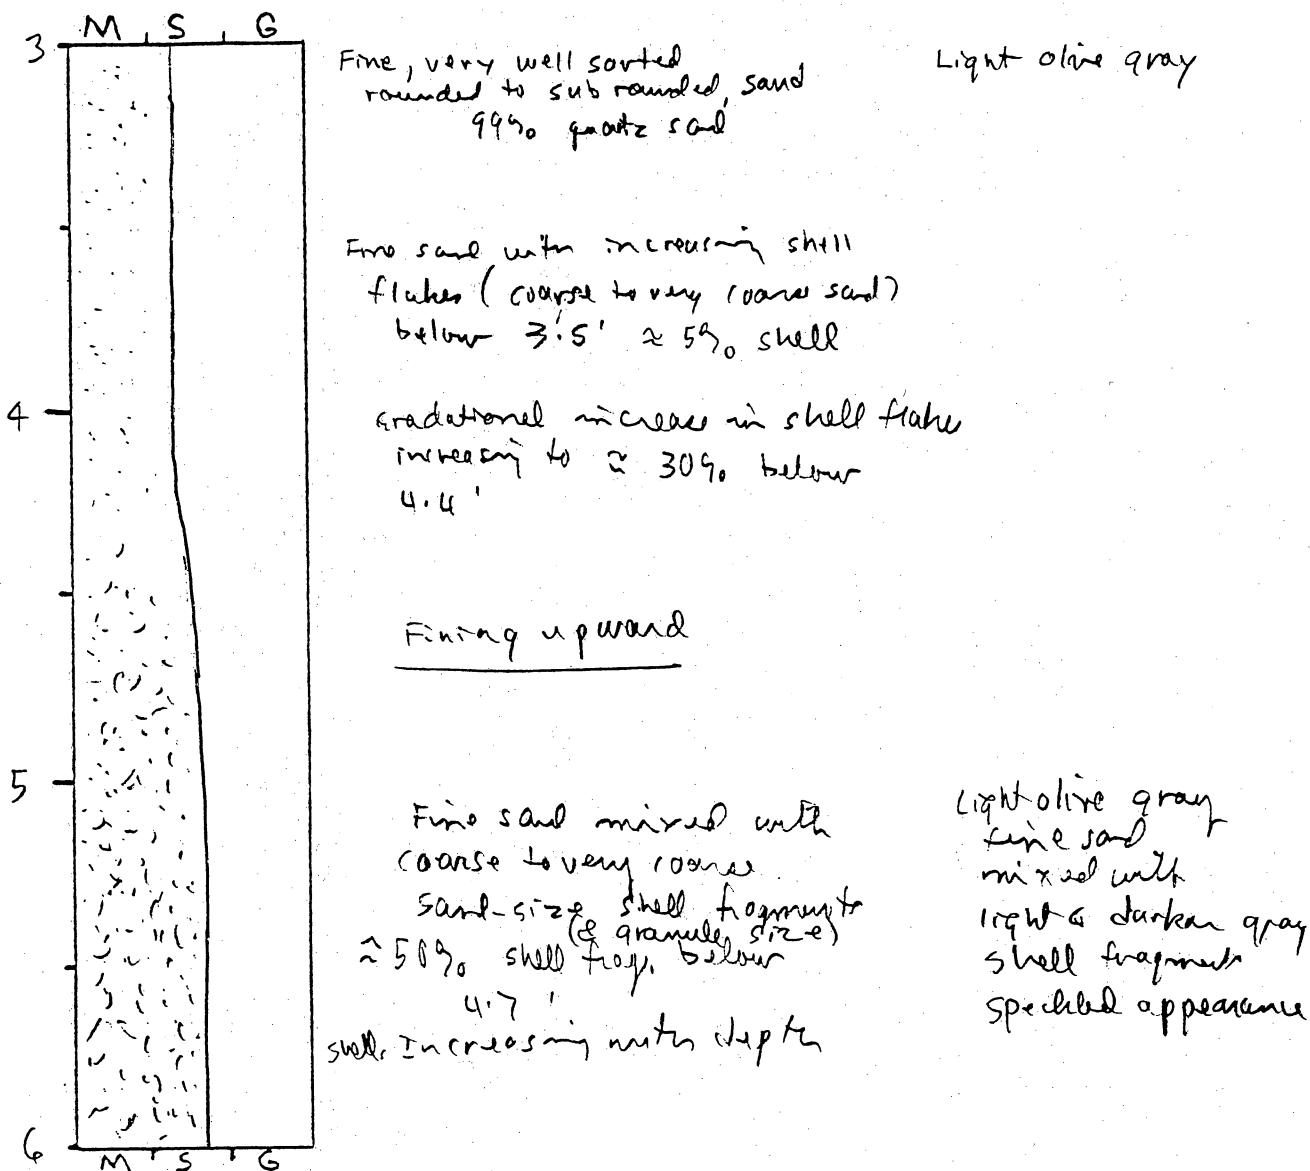 M S G
3
Fine, very well sorted
rounded to subrounded, sand
99% quartz sand
Light olive gray
Fine sand with increasing shell
flakes (coarse to very coarse sand)
below 3.5' ≈ 5% shell
4
Gradational increase in shell flakes
increasing to ≈ 30% below
4.4'
Fining upward
5
Fine sand mixed with
coarse to very coarse
sand-size shell fragments
(& granule size)
≈ 50% shell frag. below
4.7'
shell. Increasing with depth
Light olive gray
fine sand
mixed with
light & darker gray
shell fragments
speckled appearance
6
M S G